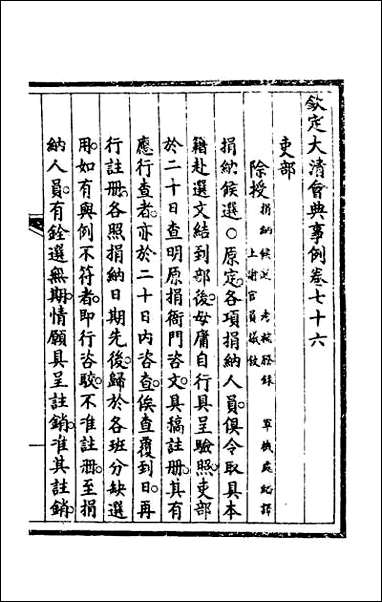 欽定大清會典事例卷七十六
吏部
除授捐納候選 考職謄錄 軍機處繙譯
上諭官員議敘
捐納候選○原定各項捐納人員俱令取具本
籍赴選文結到部後毋庸自行具呈驗照吏部
於二十日查明原捐衙門咨文具稿註冊其有
應行查者亦於二十日内咨查俟查覆到日再
行註冊各照捐納日期先後歸於各班分缺選
用如有與例不符者即行咨駁不准註冊至捐
納人員有銓選無期情願具呈註銷准其註銷